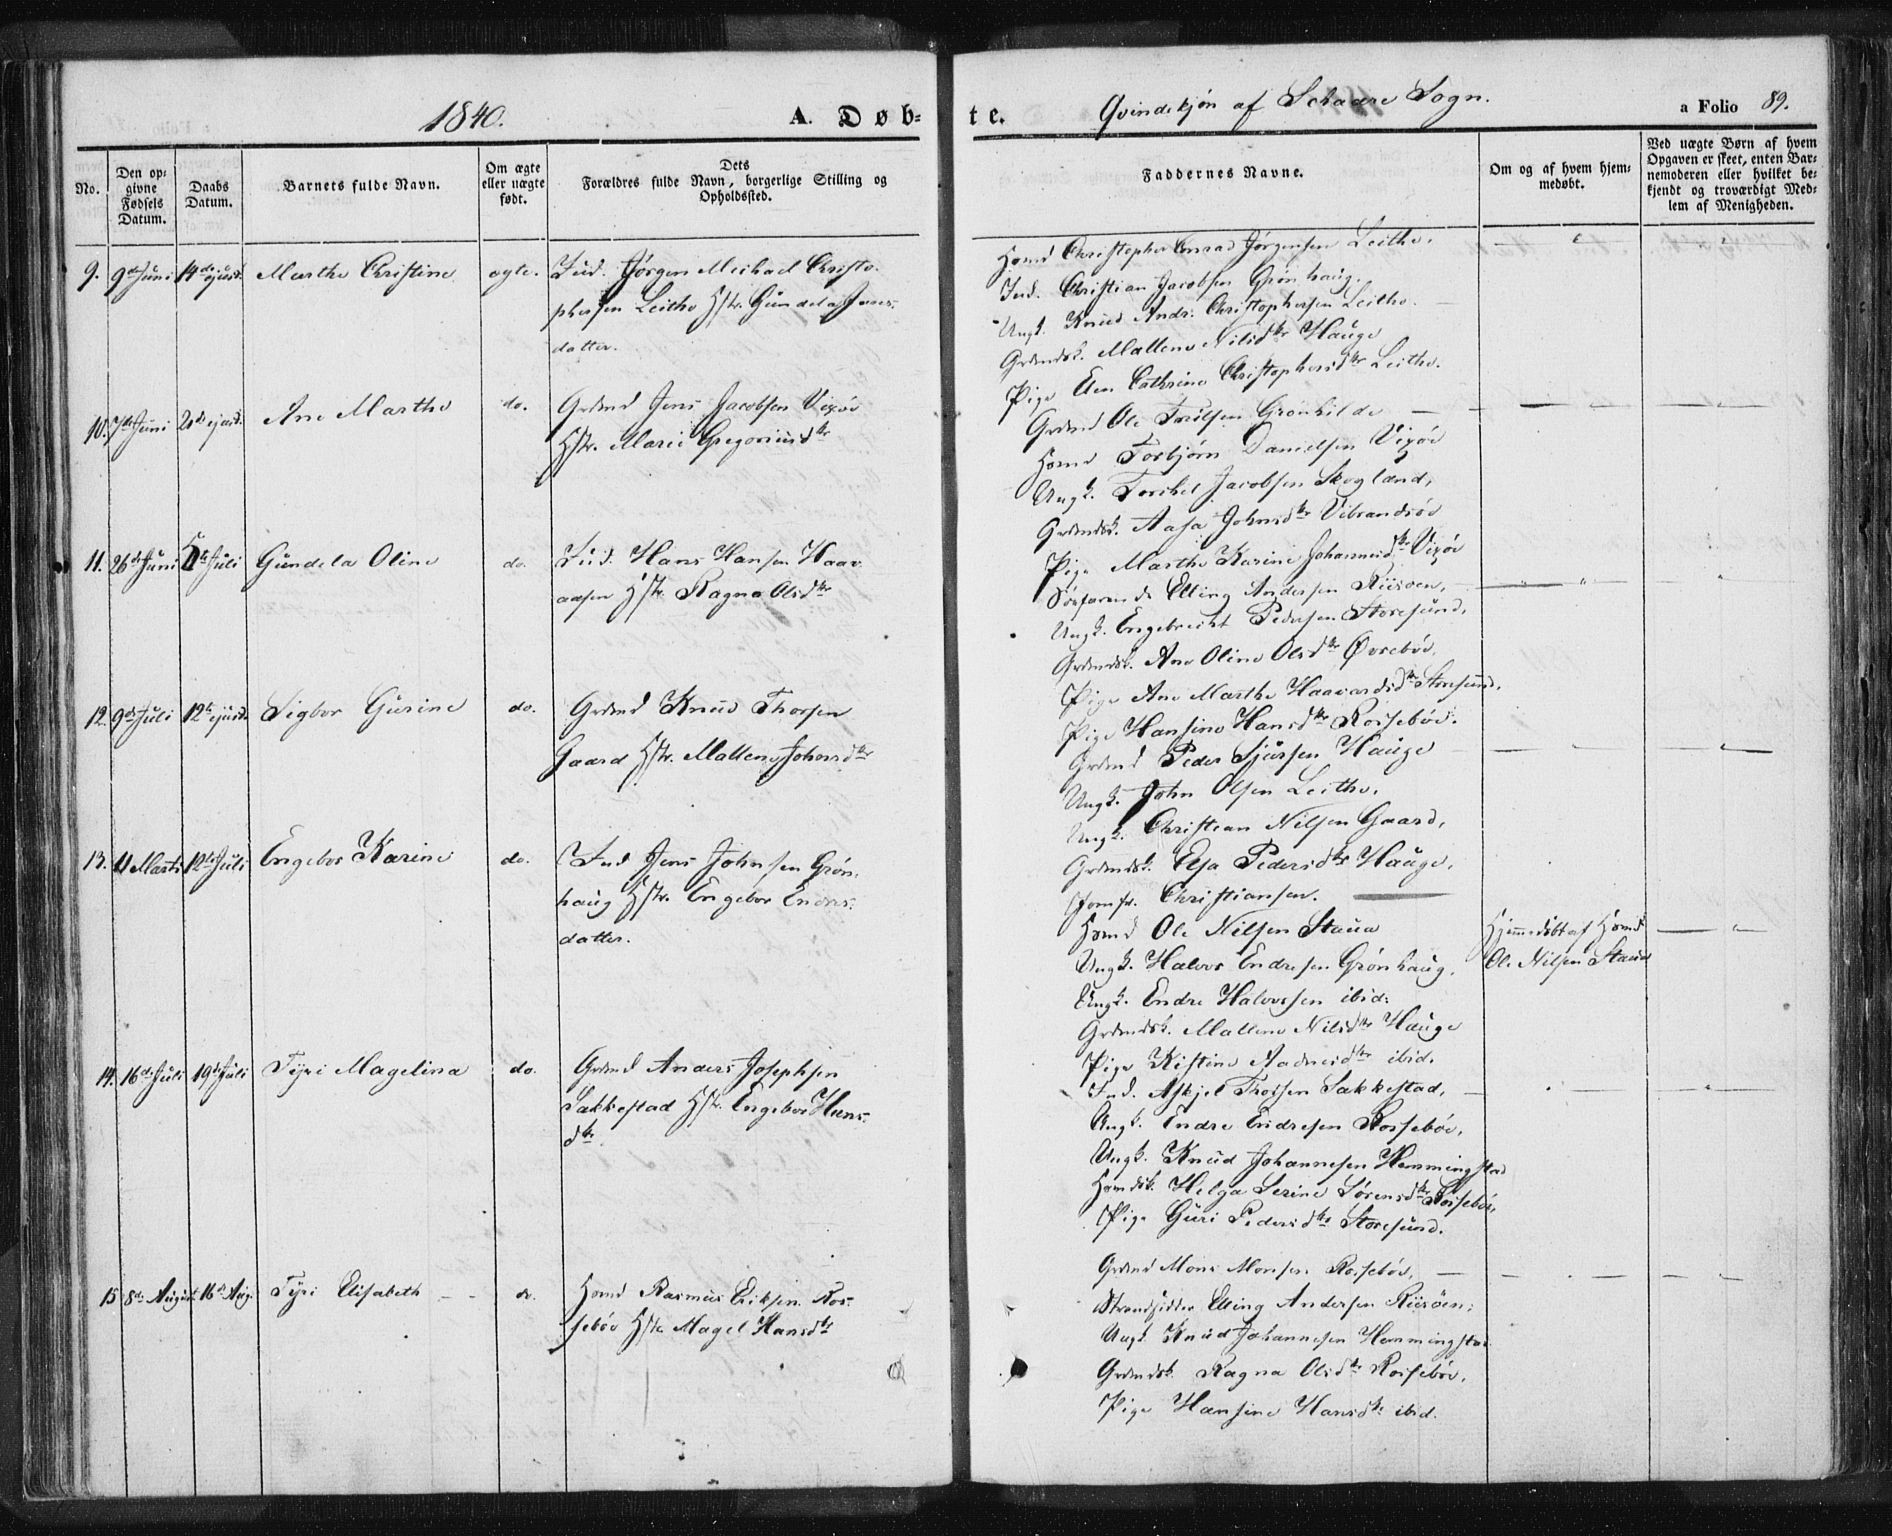 1840.
A. Døb-
te.
Qvindekjøn af Schaare Sogn.
a Folio 89.
No.
Den op-
givne
Fødsels
Datum.
Daabs
Datum.
Barnets fulde Navn.
Om ægte
eller uægte
født.
Dets
Forældres fulde Navn, borgerlige Stilling og
Opholdssted.
Faddernes Navne.
Om og af hvem hjem-
medøbt.
Ved uægte Børn af hvem
Opgaven er skeet, enten Bar-
nemoderen eller hvilket be-
kjendt og troværdigt Med-
lem af Menigheden.
9. 9de Juni 14de ejusd. Marthe Christine ægte. Ind. Jørgen Michael Christo-
phersen Leithe Hstr. Gundela Jans-
datter.
Hsmd Christopher Conrad Jørgensen Leithe.
Ind. Christian Jacobsen Grønhaug.
Ungk. Knud Andr. Christophersen Leithe.
Grdmdsk. Mallene Nilsdtr Hauge
Pige Cathrine Christophersdtr Leithe.
10. 7de Juni 21de ejusd. Ane Marthe do. Grdmd Jens Jacobsen Vixøe
Hstr. Marie Gregoriusdtr
Grdmd Ole Troelsen Grønhilde
Hsmd Torbjørn Danielsen Vixøe
Ungk. Torchel Jacobsen Skogland,
Grdmdsk. Aasa Johnsdtr Vibrandsøe
Pige Marthe Karine Johannesdtr Vixøe
11. 26de Juni 5te Juli Gundela Oline do. Ind. Hans Hansen Haav-
aasen Hstr. Ragna Olsdtr
Søefarende Elling Andersen Riisøen,
Ungk. Engebrecht Pedersen Storesund,
Grdmdsk. Ane Oline Olsdtr Øvrebøe,
Pige Ane Marthe Haavardsdtr Storesund,
Pige Hansine Hansdtr Rossebøe.
12. 9de Juli 12te ejusd. Sigbor Gurine do. Grdmd Knud Thorsen
Gaard Hstr. Mallene Johnsdtr
Grdmd Peder Sjursen Hauge
Ungk. John Olsen Leithe.
Ungk. Christian Nilsen Gaard,
Grdmdsk. Elsa Pedersdtr Hauge,
Jomfr. Christiansen.
13. 11 Marts 12te Juli Engebor Karine do. Ind Jens Johnsen Grøn-
haug Hstr. Engebor Endres-
datter.
Hsmd Ole Nilsen Staua
Ungk. Halvor Endresen Grønhaug,
Ungk. Endre Halvorsen ibid:
Grdmdsk. Mallene Nilsdtr Hauge
Pige Kistine Aadnesdtr ibid.
Hjemmedøbt af Hsmd
Ole Nilsen Staua
14. 16de Juli 19de Juli Tyri Magelina do. Grdmd Anders Josephsen
Sakkestad Hstr. Engebor Hans-
dtr.
Ind. Askjel Troesen Sakkestad,
Ungk. Endre Endresen Rossebøe,
Ungk. Knud Johannesen Hemmingstad
Hsmdsk. Helga Serine Sørensdtr Rossebøe,
Pige Guri Pedersdtr Storesund.
15 8de August 16de Aug. Tyri Elisabeth do. Hsmd Rasmus Eriksen Ros-
sebøe Hstr. Magel Hansdtr
Grdmd Mons Monsen Rossebøe,
Strandsidder Elling Andersen Riisøen,
Ungk. Knud Johannesen Hemmingstad
Grdmdsk. Ragna Olsdtr Rossebøe,
Pige Hansine Hansdtr ibid.